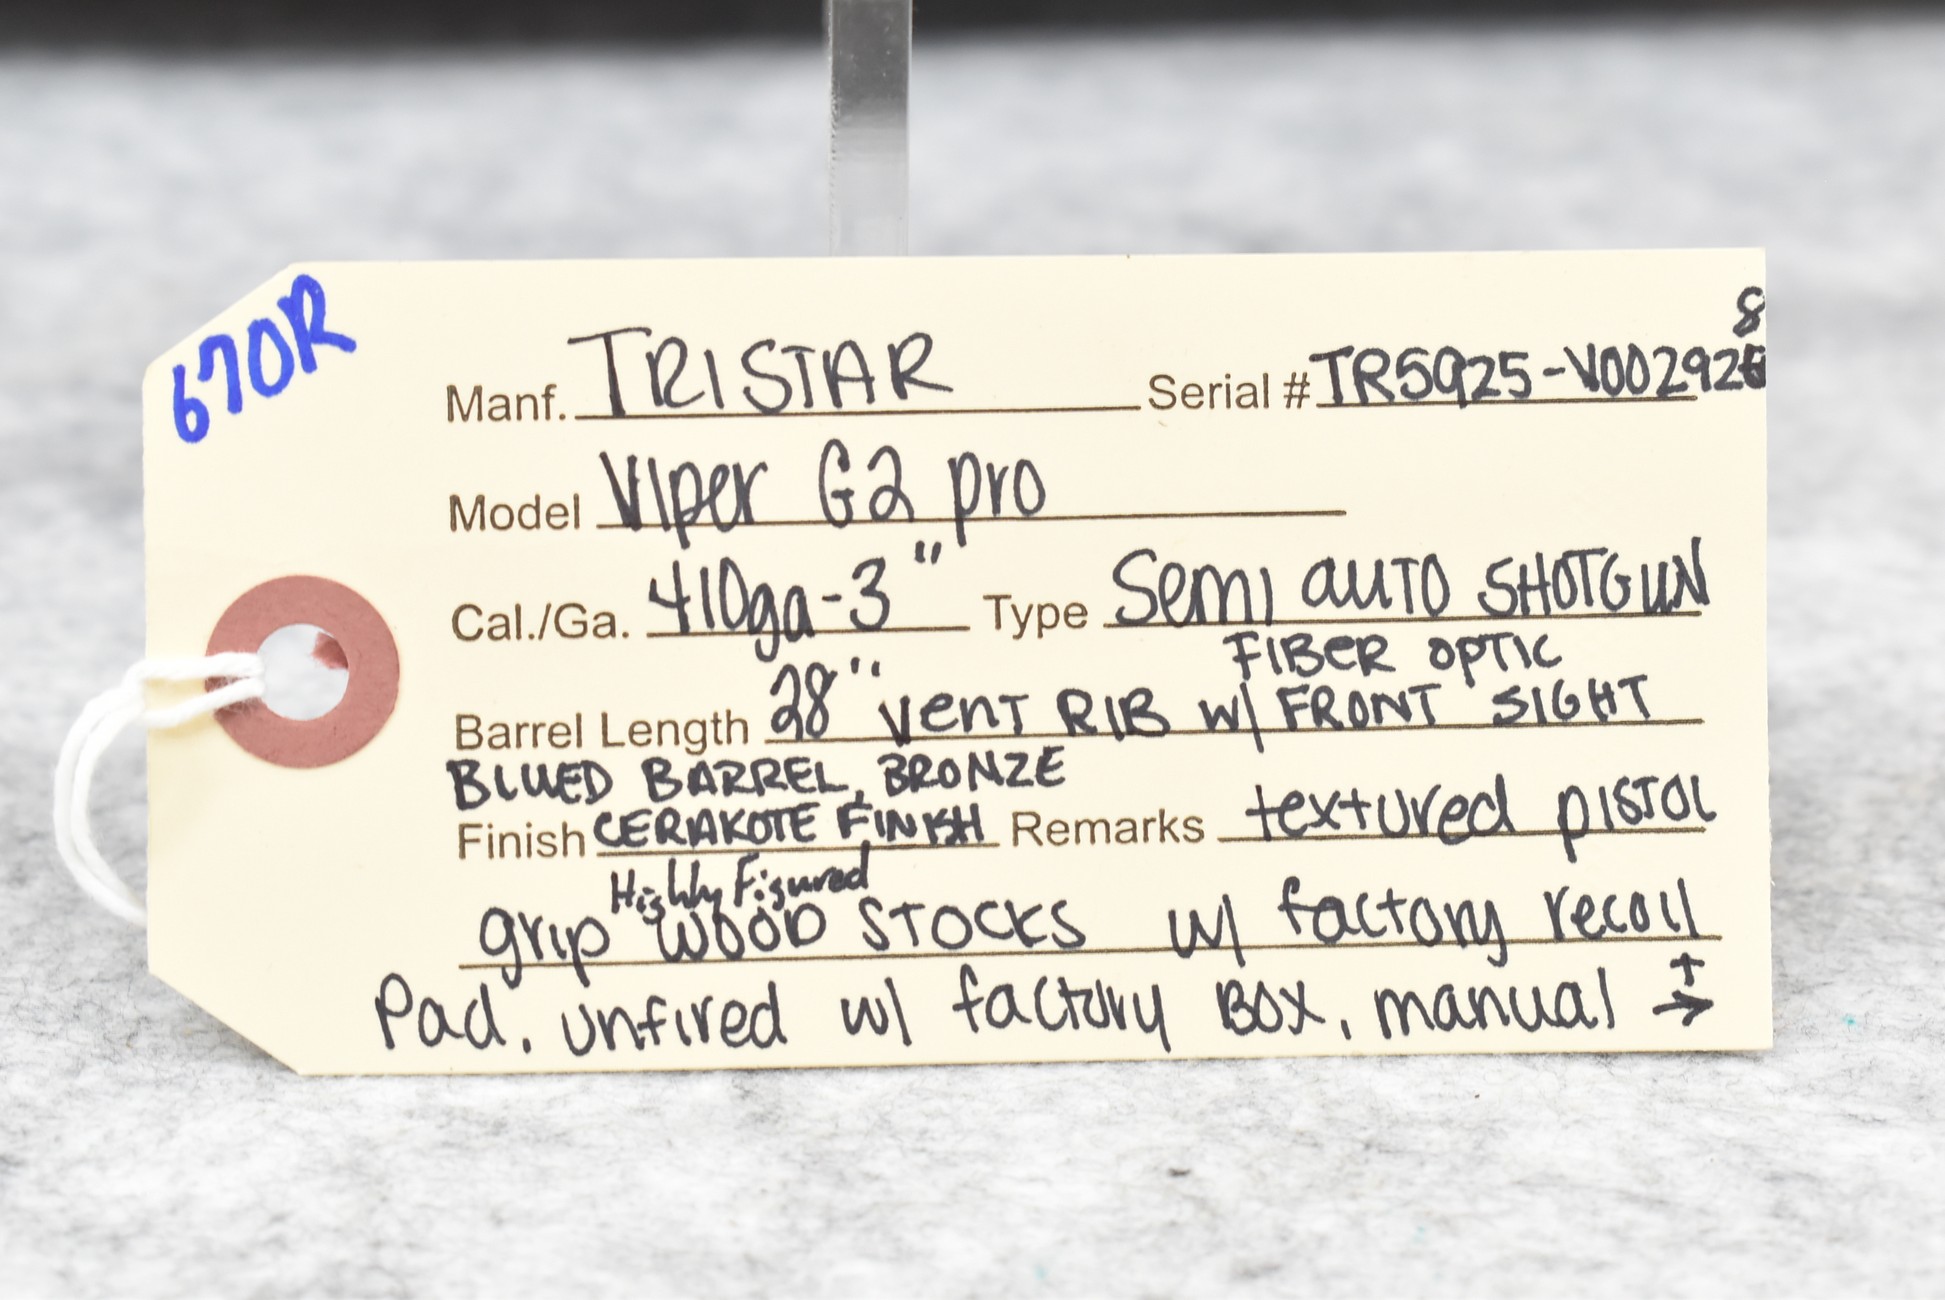 670R
Manf. TRISTAR Serial # TR5925-V002928
Model Viper G2 pro
Cal./Ga. 410ga-3" Type Semi auto SHOTGUN
FIBER OPTIC
Barrel Length 28" Vent RIB w/ FRONT SIGHT
BLUED BARREL, BRONZE
Finish CERAKOTE FINISH Remarks textured pistol
Highly Figured
grip WOOD STOCKS w/ factory recoil
Pad. unfired w/ factory Box, manual + →